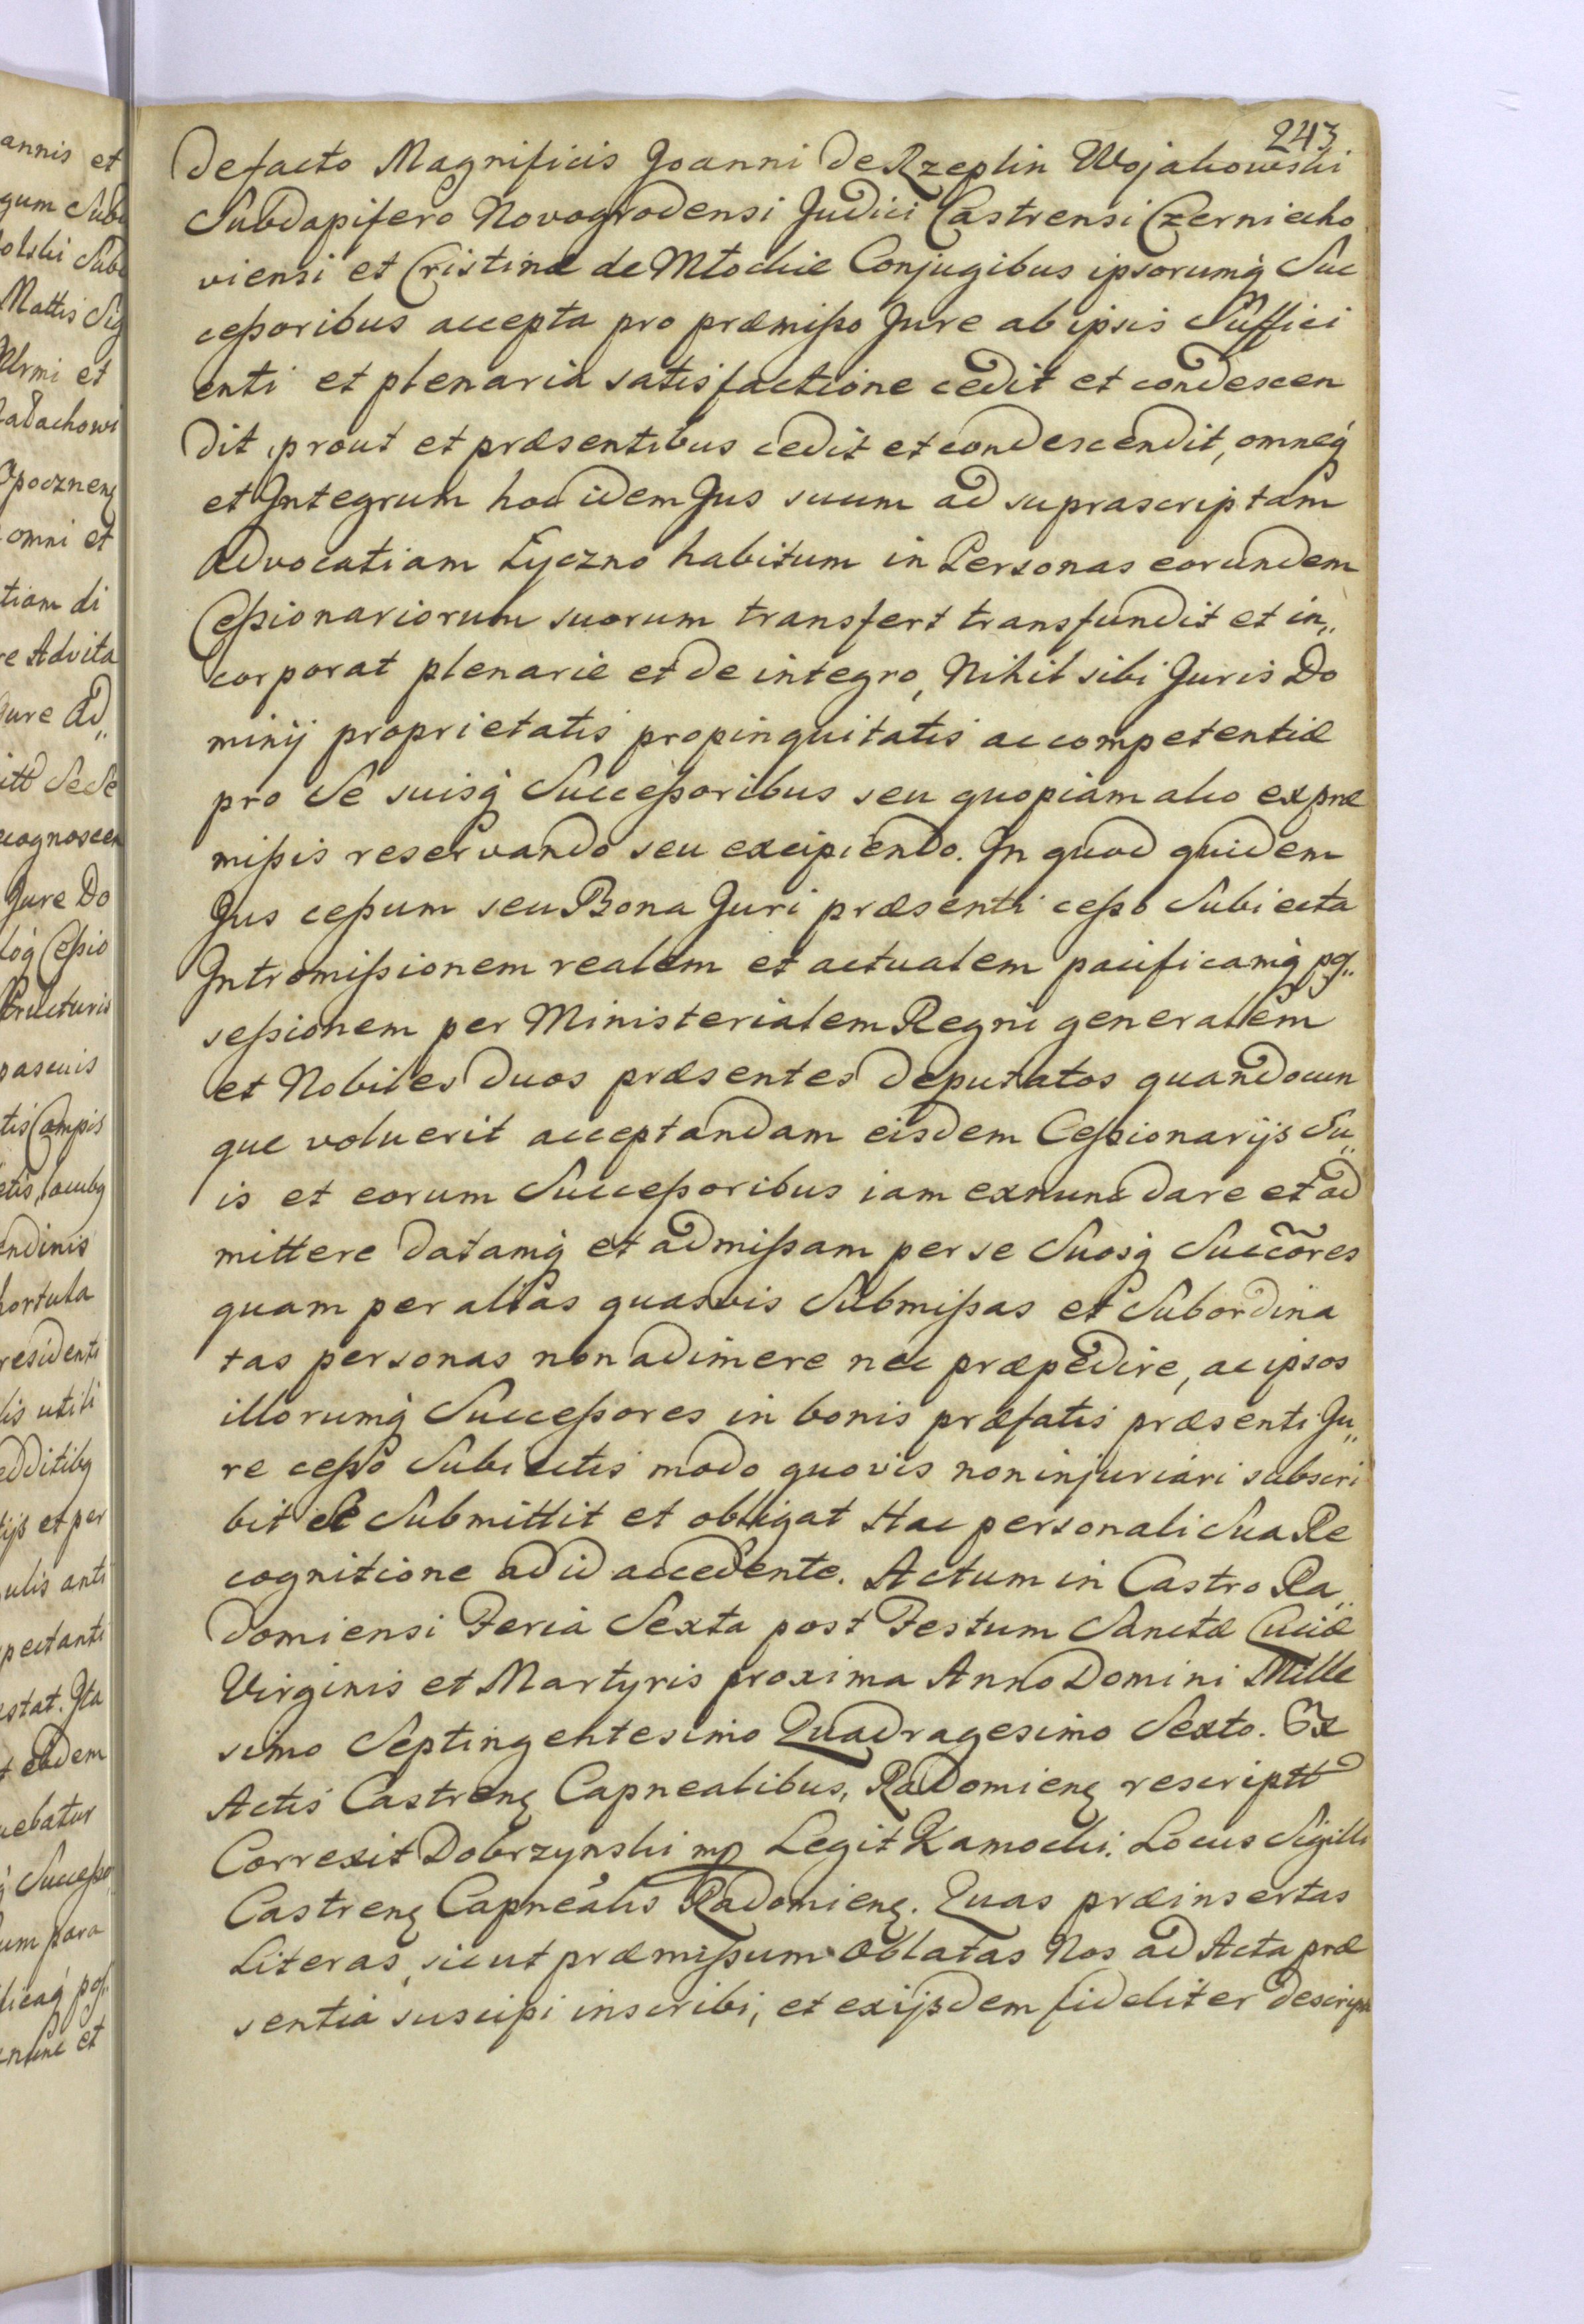 243
de facto Magnificis Joanni de Rzeplin Wojakowski
Subdapifero Novogrodensi Judici Castrensi Czerniecho
viensi et Cristinæ de Młockie Conjugibus ipsorumq́ Suc
ceßoribus accepta pro præmißo Jure ab ipsis Suffici
enti et plenaria satisfactione cedit et condescen
dit, prout et præsentibus cedit et condescendit, omneq́
et Integrum hoc idem Jus suum ad suprascriptam
Advocatiam Łyczno habitum in Personas eorundem
Ceßionariorum suorum transfert transfundit et in„
corporat plenarie et de integro, Nihil sibi Juris Do
minij proprietatis propinquitatis ac competentiæ
pro Se suisq́ Succeßoribus seu quopiam alio ex præ
mißis reservando seu excipiendo. In quod quidem
Jus ceßum seu Bona Juri præsenti ceßo Subiecta
Intromißionem realem et actualem pacificamq́ poß„
seßionem per Ministerialem Regni generalem
et Nobiles duos præsentes deputatos quandocun
que voluerit acceptandam eisdem Ceßionarijs Su„
is et eorum Succeßoribus iam exnunc dare et ad
mittere datamq́ et admißam per se Suosq́ Succõres
quam per alias quasvis Submißas et Subordina
tas personas non adimere nec præpedire, ac ipsos
illorumq́ Succeßores in bonis præfatis præsenti Ju„
re ceßo Subiectis modo quovis non injuriari subscri
bit et Submittit et obligat Hac personali Sua Re
cognitione ad id accedente. Actum in Castro Ra„
domiensi Feria Sexta post Festum Sanctæ Luciæ
Virginis et Martyris proxima Anno Domini Mille
simo Septingentesimo Quadragesimo Sexto. Ex
Actis Castrenȝ Capnealibus, Radomienȝ rescriptt
Correxit Dobrzynski mp Legit Kamocki. Locus Sigilli
Castrenȝ Capnealis Radomienȝ. Quas præinsertas
Literas, sicut præmißum oblatas Nos ad Acta præ
sentia suscipi inscribi, et exijsdem fideliter descript